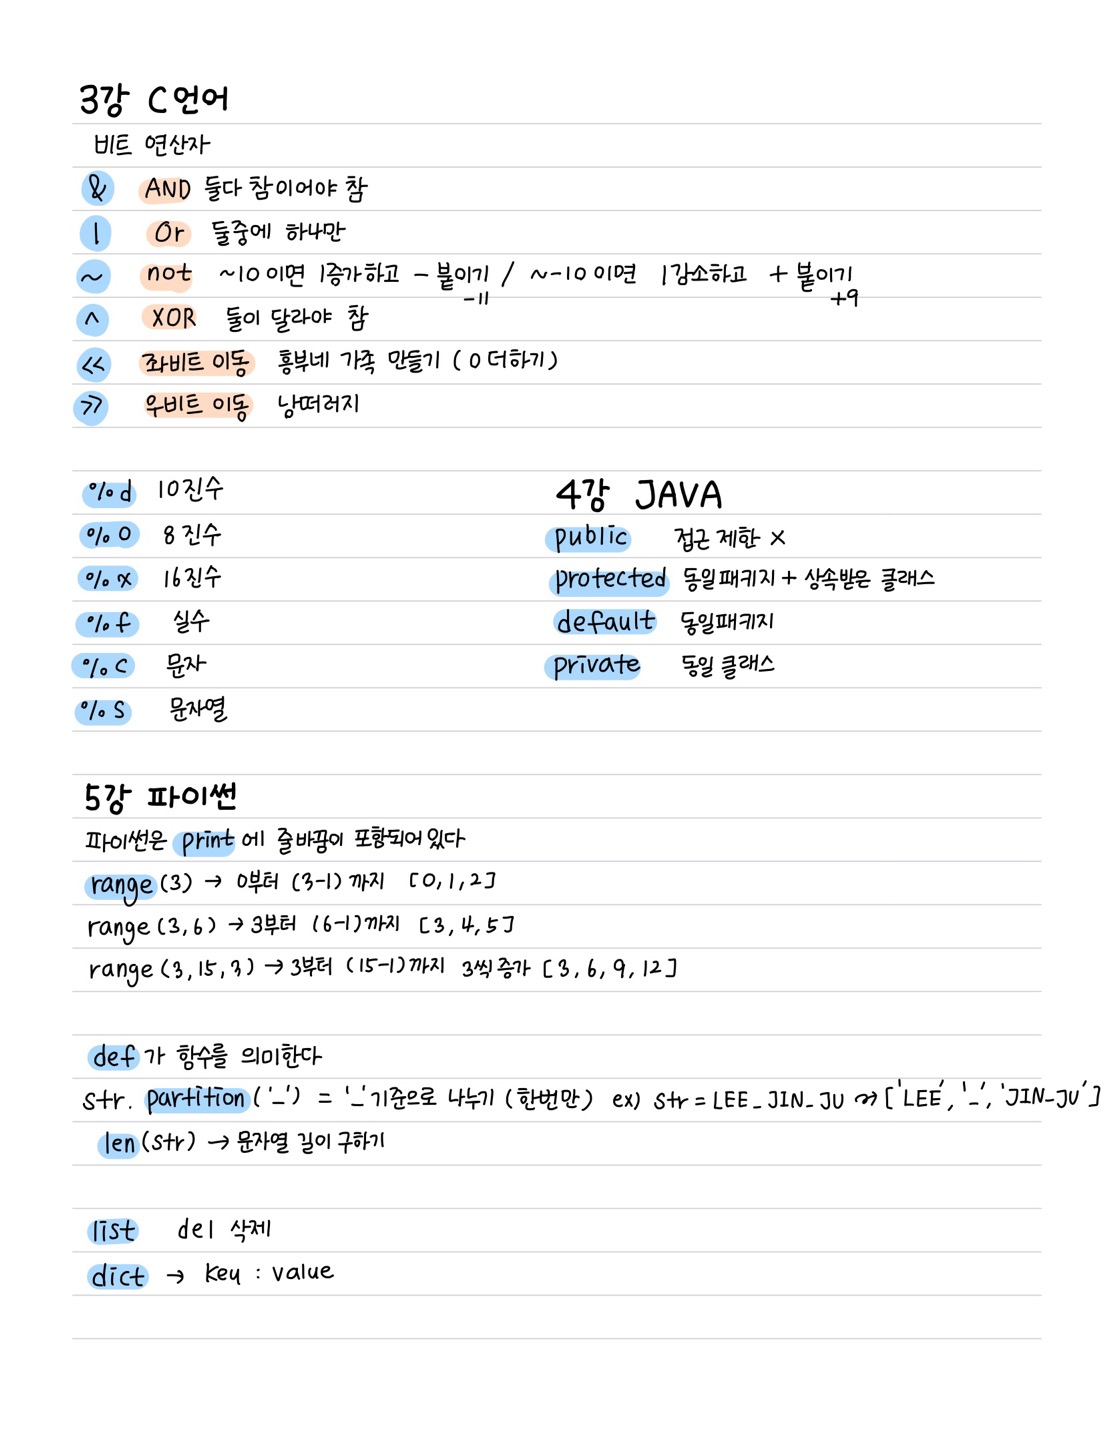 3강 C언어
비트 연산자
& AND 둘다 참이어야 참
| Or 둘중에 하나만
~ not ~10 이면 1증가하고 - 붙이기 / ~-10 이면 1감소하고 + 붙이기
-11 +9
^ XOR 둘이 달라야 참
<< 좌비트 이동 흥부네 가족 만들기 (0 더하기)
>> 우비트 이동 낭떠러지
%d 10진수
%o 8진수
%x 16진수
%f 실수
%c 문자
%s 문자열
4강 JAVA
public 접근 제한 X
protected 동일패키지 + 상속받은 클래스
default 동일패키지
private 동일 클래스
5강 파이썬
파이썬은 print에 줄바꿈이 포함되어있다
range(3) → 0부터 (3-1)까지 [0,1,2]
range(3,6) → 3부터 (6-1)까지 [3,4,5]
range(3,15,3) → 3부터 (15-1)까지 3씩 증가 [3,6,9,12]
def가 함수를 의미한다
str.partition('_') = '_'기준으로 나누기 (한번만) ex) str = LEE_JIN_JU ↝ ['LEE', '_', 'JIN_JU']
len(str) → 문자열 길이 구하기
list del 삭제
dict → key : value